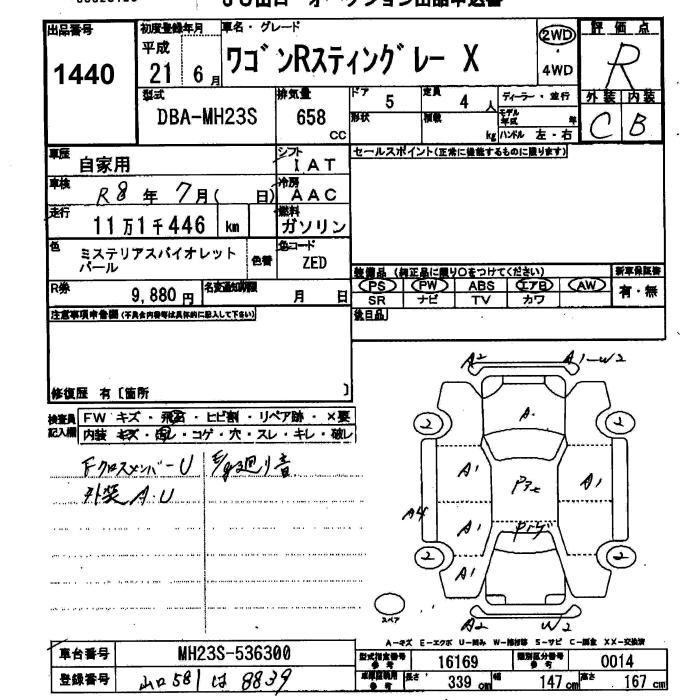 出品番号
1440
初度登録年月
平成
21 6月
車名・グレード
ワゴンRスティングレー X
2WD
・
4WD
評価点
R
外装 内装
C B
型式
DBA-MH23S
排気量
658
CC
ドア 5
定員 4 人
ディーラー・並行
形状
積載 kg
モデル年式 年
ハンドル 左・右
車歴
自家用
シフト
IAT
セールスポイント(正常に機能するものに限ります)
車検
R8年7月( 日)
冷房
AAC
走行
11万1千446 km
燃料
ガソリン
色
ミステリアスバイオレット
パール
色替
色コード
ZED
装備品 (純正品に限り○をつけてください)
PS PW ABS エアB AW
SR ナビ TV カワ
新車保証書
有・無
R券
9,880円
名変通知期限
月 日
後日品
注意事項申告欄(不具合内容等は具体的に記入して下さい)
修復歴 有〔箇所 〕
検査員
記入欄
FW キズ・飛石・ヒビ割・リペア跡・×要
内装 キズ・汚レ・コゲ・穴・スレ・キレ・破レ
Fクロスメンバー U
外装 A.U
廻り音
A2
A1-W2
2
A
2
A1
A1
A4
A1
A1
2
2
A2
W2
スペア
A-キズ E-エクボ U-凹み W-補修跡 S-サビ C-腐食 XX-交換済
車台番号
MH23S-536300
型式指定番号
参考
16169
類別区分番号
参考
0014
登録番号
山口 581 は 8839
車庫証明用
参考
長さ 339 cm
幅 147 cm
高さ 167 cm